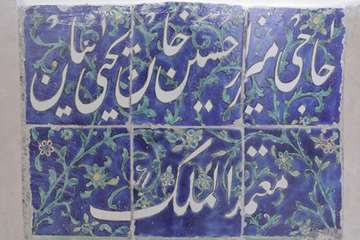 حاجی میرزا حسین خان یحیی ائیان
معتمد الملک